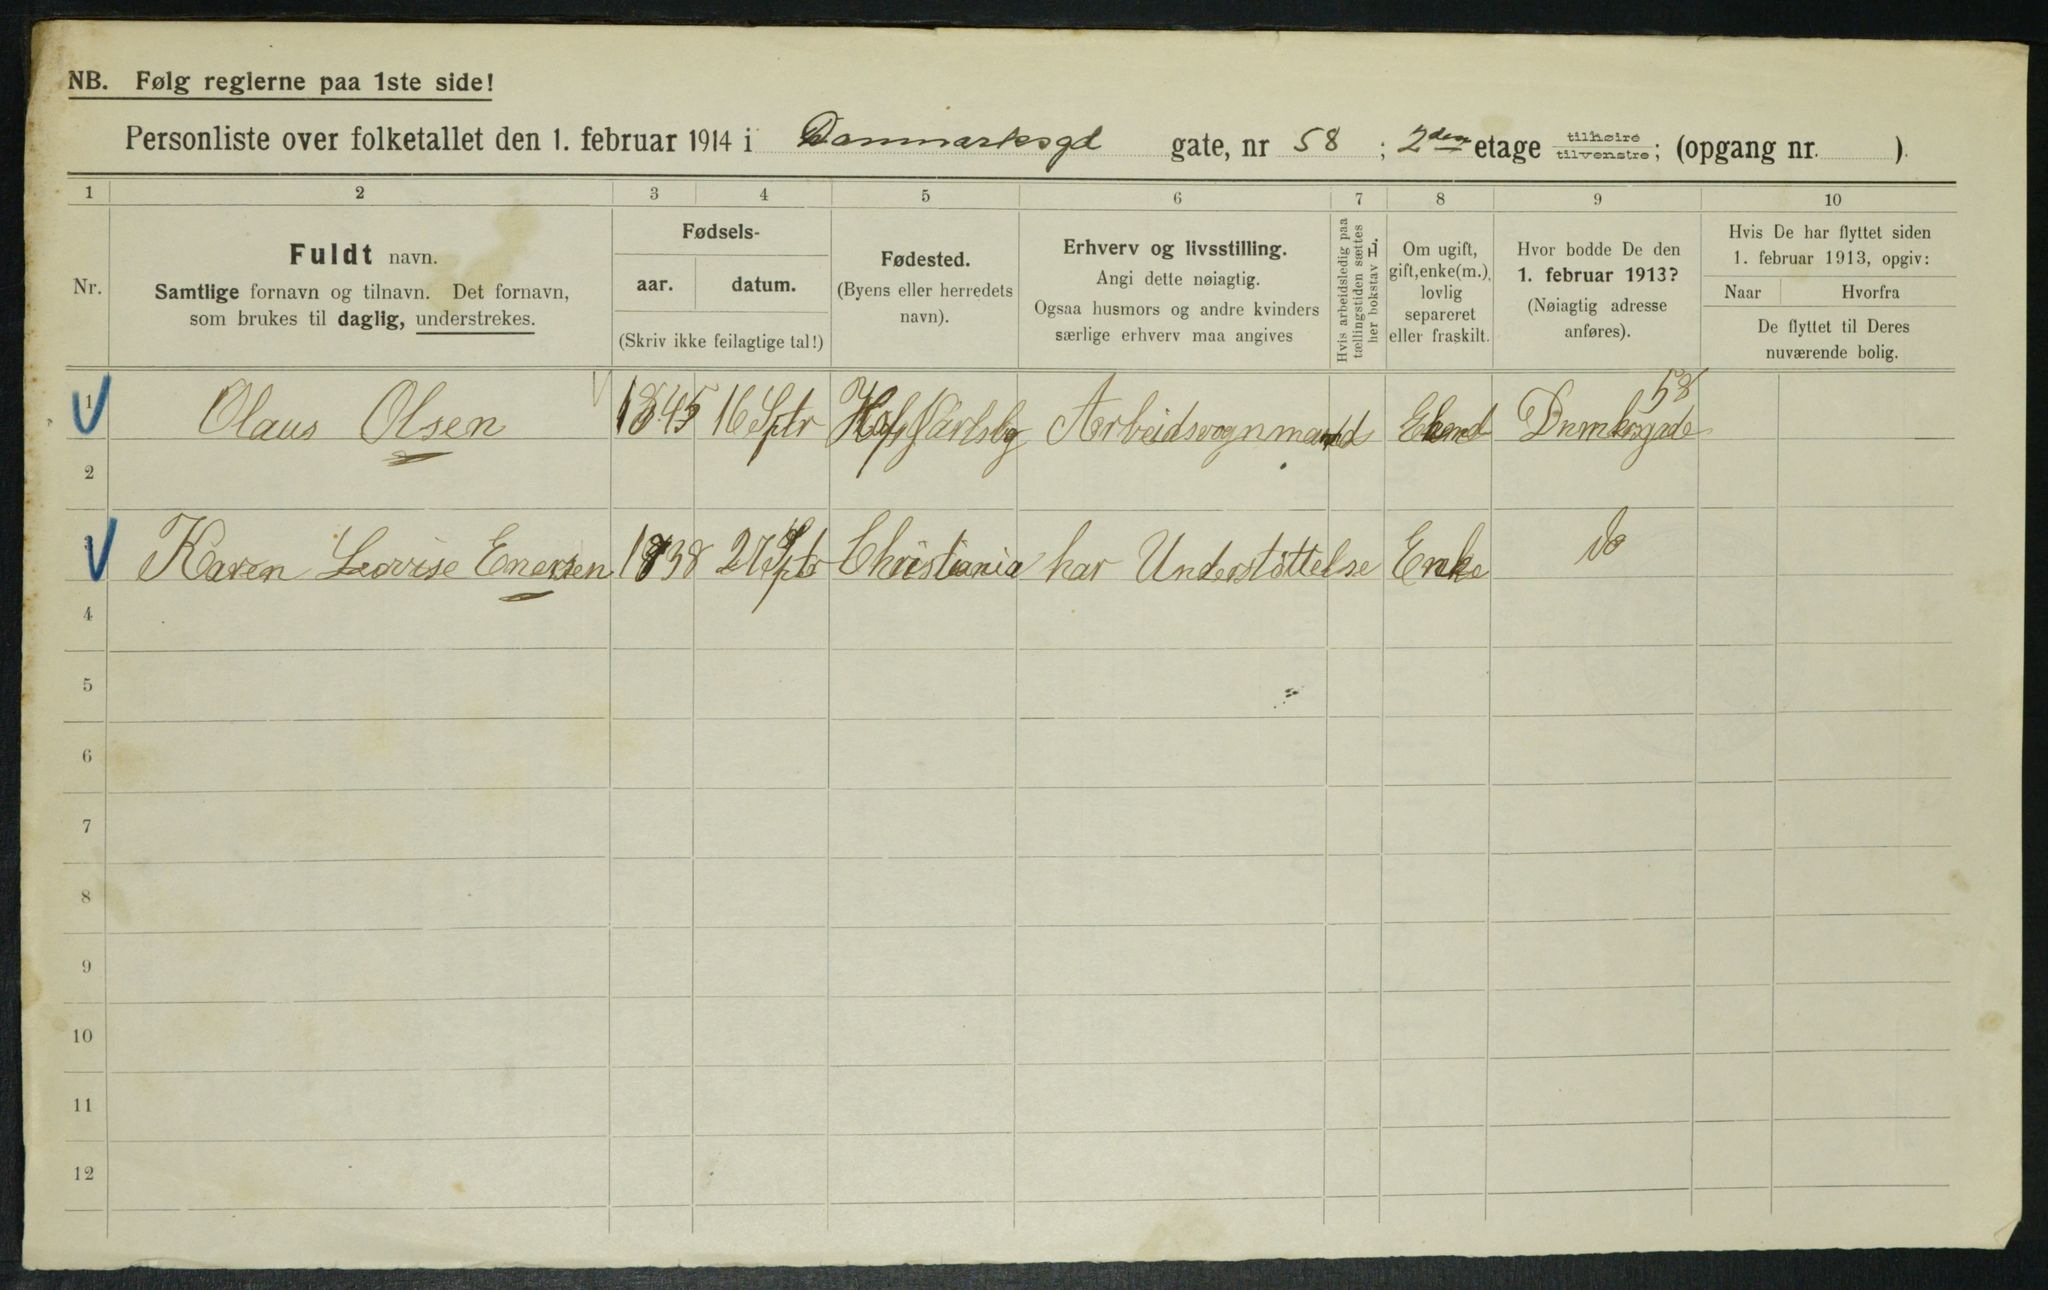 NB. Følg reglerne paa 1ste side!
Personliste over folketallet den 1. februar 1914 i Danmarksgd gate, nr 58 ; 2den etage tilhøire tilvenstre; (opgang nr. ).
1 2 3 4 5 6 7 8 9 10
Nr.
Fuldt navn.
Samtlige fornavn og tilnavn. Det fornavn,
som brukes til daglig, understrekes.
Fødsels-
aar. datum.
(Skriv ikke feilagtige tal!)
Fødested.
(Byens eller herredets
navn).
Erhverv og livsstilling.
Angi dette nøiagtig.
Ogsaa husmors og andre kvinders
særlige erhverv maa angives
Hvis arbeidsledig paa
tællingstiden sættes
her bokstav L.
Om ugift,
gift, enke(m.),
lovlig
separeret
eller fraskilt.
Hvor bodde De den
1. februar 1913?
(Nøiagtig adresse
anføres).
Hvis De har flyttet siden
1. februar 1913, opgiv:
Naar Hvorfra
De flyttet til Deres
nuværende bolig.
1 Olaus Olsen 1845 16 Sptr Arbeidsvognmand 58
2
Karen Lovise Enersen 1838 27 Sptr Christiania har Understöttelse Enke do
4
5
6
7
8
9
10
11
12